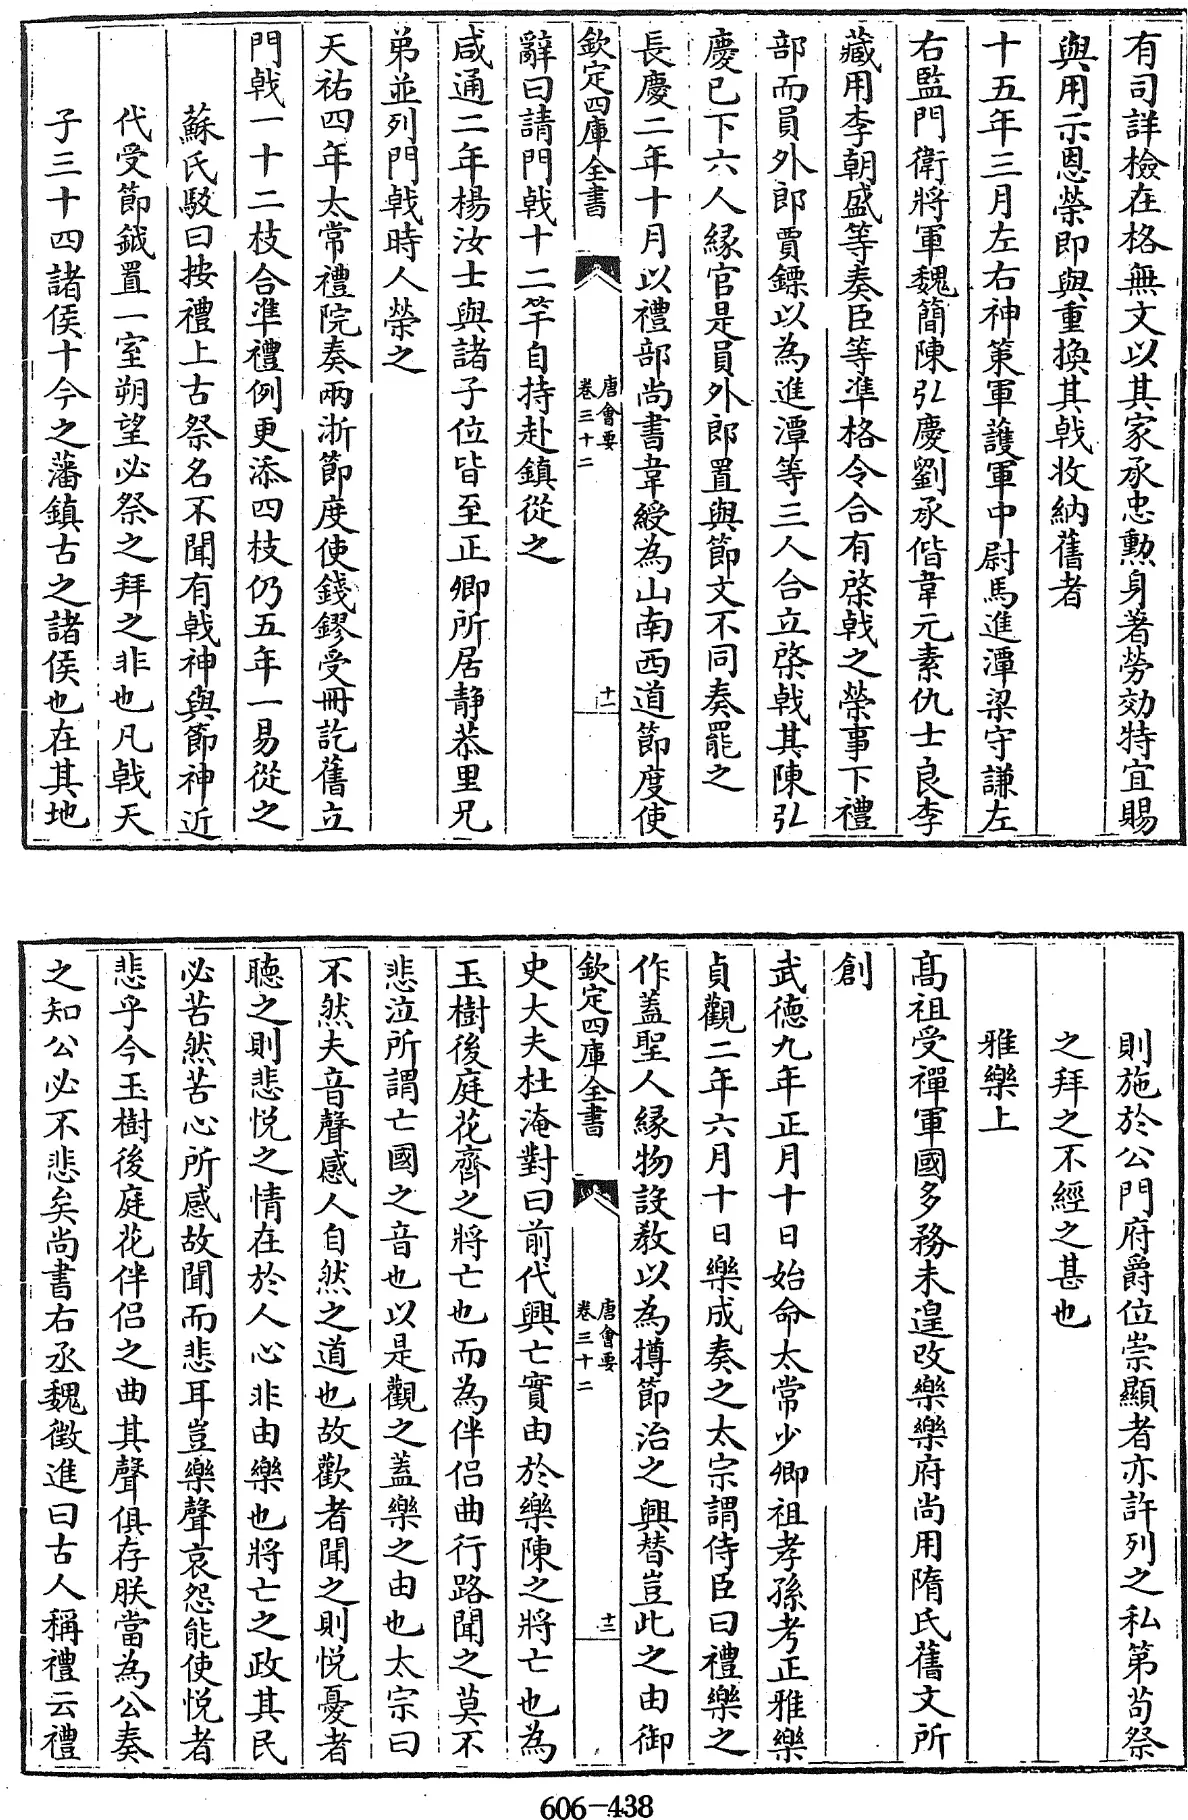 有司詳檢在格無文以其家承忠勲身著勞効特宜賜
與用示恩榮即與重換其戟收納舊者
十五年三月左右神策軍護軍中尉馬進潭梁守謙左
右監門衛將軍魏簡陳弘慶劉承偕韋元素仇士良李
藏用李朝盛等奏臣等準格令合有棨戟之榮事下禮
部而員外郎賈鏢以為進潭等三人合立棨戟其陳弘
慶已下六人緣官是員外郎置與節文不同奏罷之
長慶二年十月以禮部尚書韋綬為山南西道節度使
欽定四庫全書
唐會要
卷三十二
十一
辭曰請門戟十二竿自持赴鎮從之
咸通二年楊汝士與諸子位皆至正卿所居靜恭里兄
弟並列門戟時人榮之
天祐四年太常禮院奏兩浙節度使錢鏐受冊訖舊立
門戟一十二枝合準禮例更添四枝仍五年一易從之
蘇氏駁曰按禮上古祭名不聞有戟神與節神近
代受節鉞置一室朔望必祭之拜之非也凡戟天
子三十四諸侯十今之藩鎮古之諸侯也在其地
則施於公門府爵位崇顯者亦許列之私第茍祭
之拜之不經之甚也
雅樂上
髙祖受禪軍國多務未遑改樂樂府尚用隋氏舊文所
創
武德九年正月十日始命太常少卿祖孝孫考正雅樂
貞觀二年六月十日樂成奏之太宗謂侍臣曰禮樂之
作蓋聖人緣物設教以為撙節治之興替豈此之由御
欽定四庫全書
唐會要
卷三十二
十三
史大夫杜淹對曰前代興亡實由於樂陳之將亡也為
玉樹後庭花齊之將亡也而為伴侶曲行路聞之莫不
悲泣所謂亡國之音也以是觀之蓋樂之由也太宗曰
不然夫音聲感人自然之道也故歡者聞之則悅憂者
聽之則悲悅之情在於人心非由樂也將亡之政其民
必苦然苦心所感故聞而悲耳豈樂聲哀怨能使悅者
悲乎今玉樹後庭花伴侶之曲其聲俱存朕當為公奏
之知公必不悲矣尚書右丞魏徵進曰古人稱禮云禮
606-438